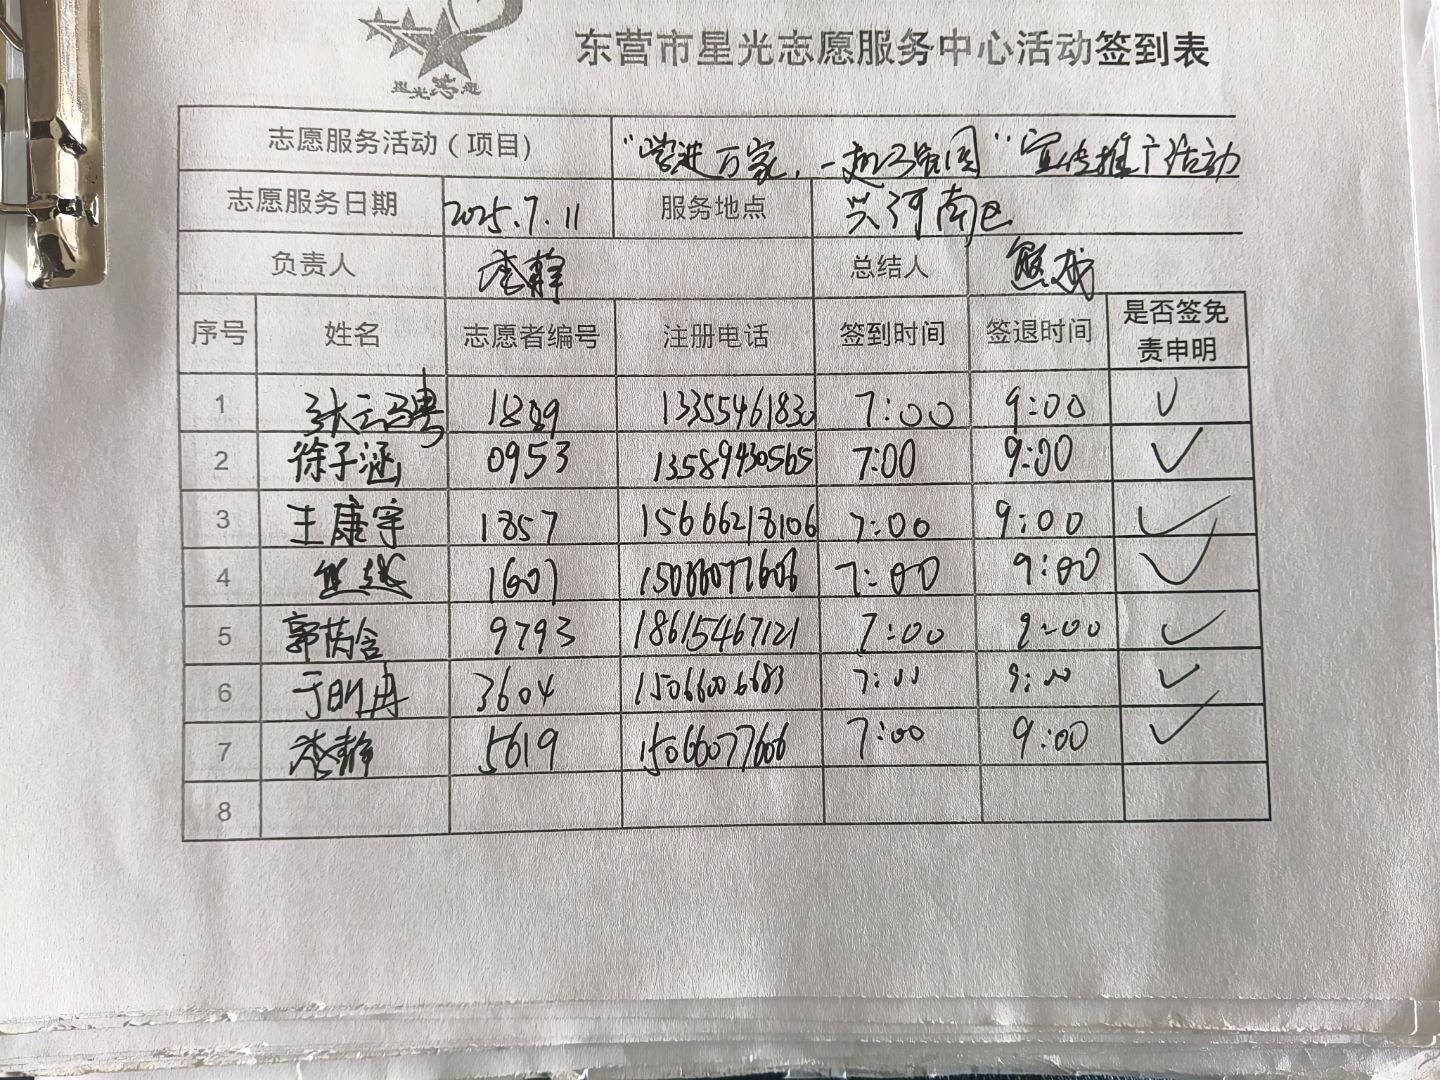 星光志愿
东营市星光志愿服务中心活动签到表
志愿服务活动（项目) "学进万家, 一起" 宣传推广活动
志愿服务日期 2025.7.11 服务地点 兴河南
负责人 李静 总结人 熊
序号 姓名 志愿者编号 注册电话 签到时间 签退时间 是否签免责申明
1 张云 1889 13355461830 7:00 9:00 ✓
2 徐子涵 0953 13589430565 7:00 9:00 ✓
3 王康宇 1857 15666218106 7:00 9:00 ✓
4 1607 15066077606 7:00 9:00 ✓
5 郭芮含 9793 18615467121 7:00 9:00 ✓
6 于明冉 3604 15066006683 7:00 9:00 ✓
7 李静 5619 15066077606 7:00 9:00 ✓
8